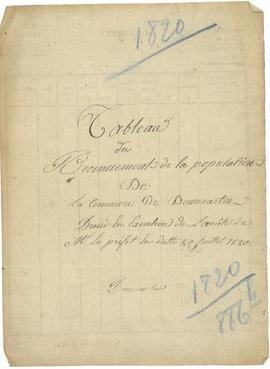 1820
Tableau
du
Recensement de la population
De
La Commune De Dommartin
Dressé En Execution de L'arrêté de
Mr Le préfet En datte 29 Juillet 1820.
1820